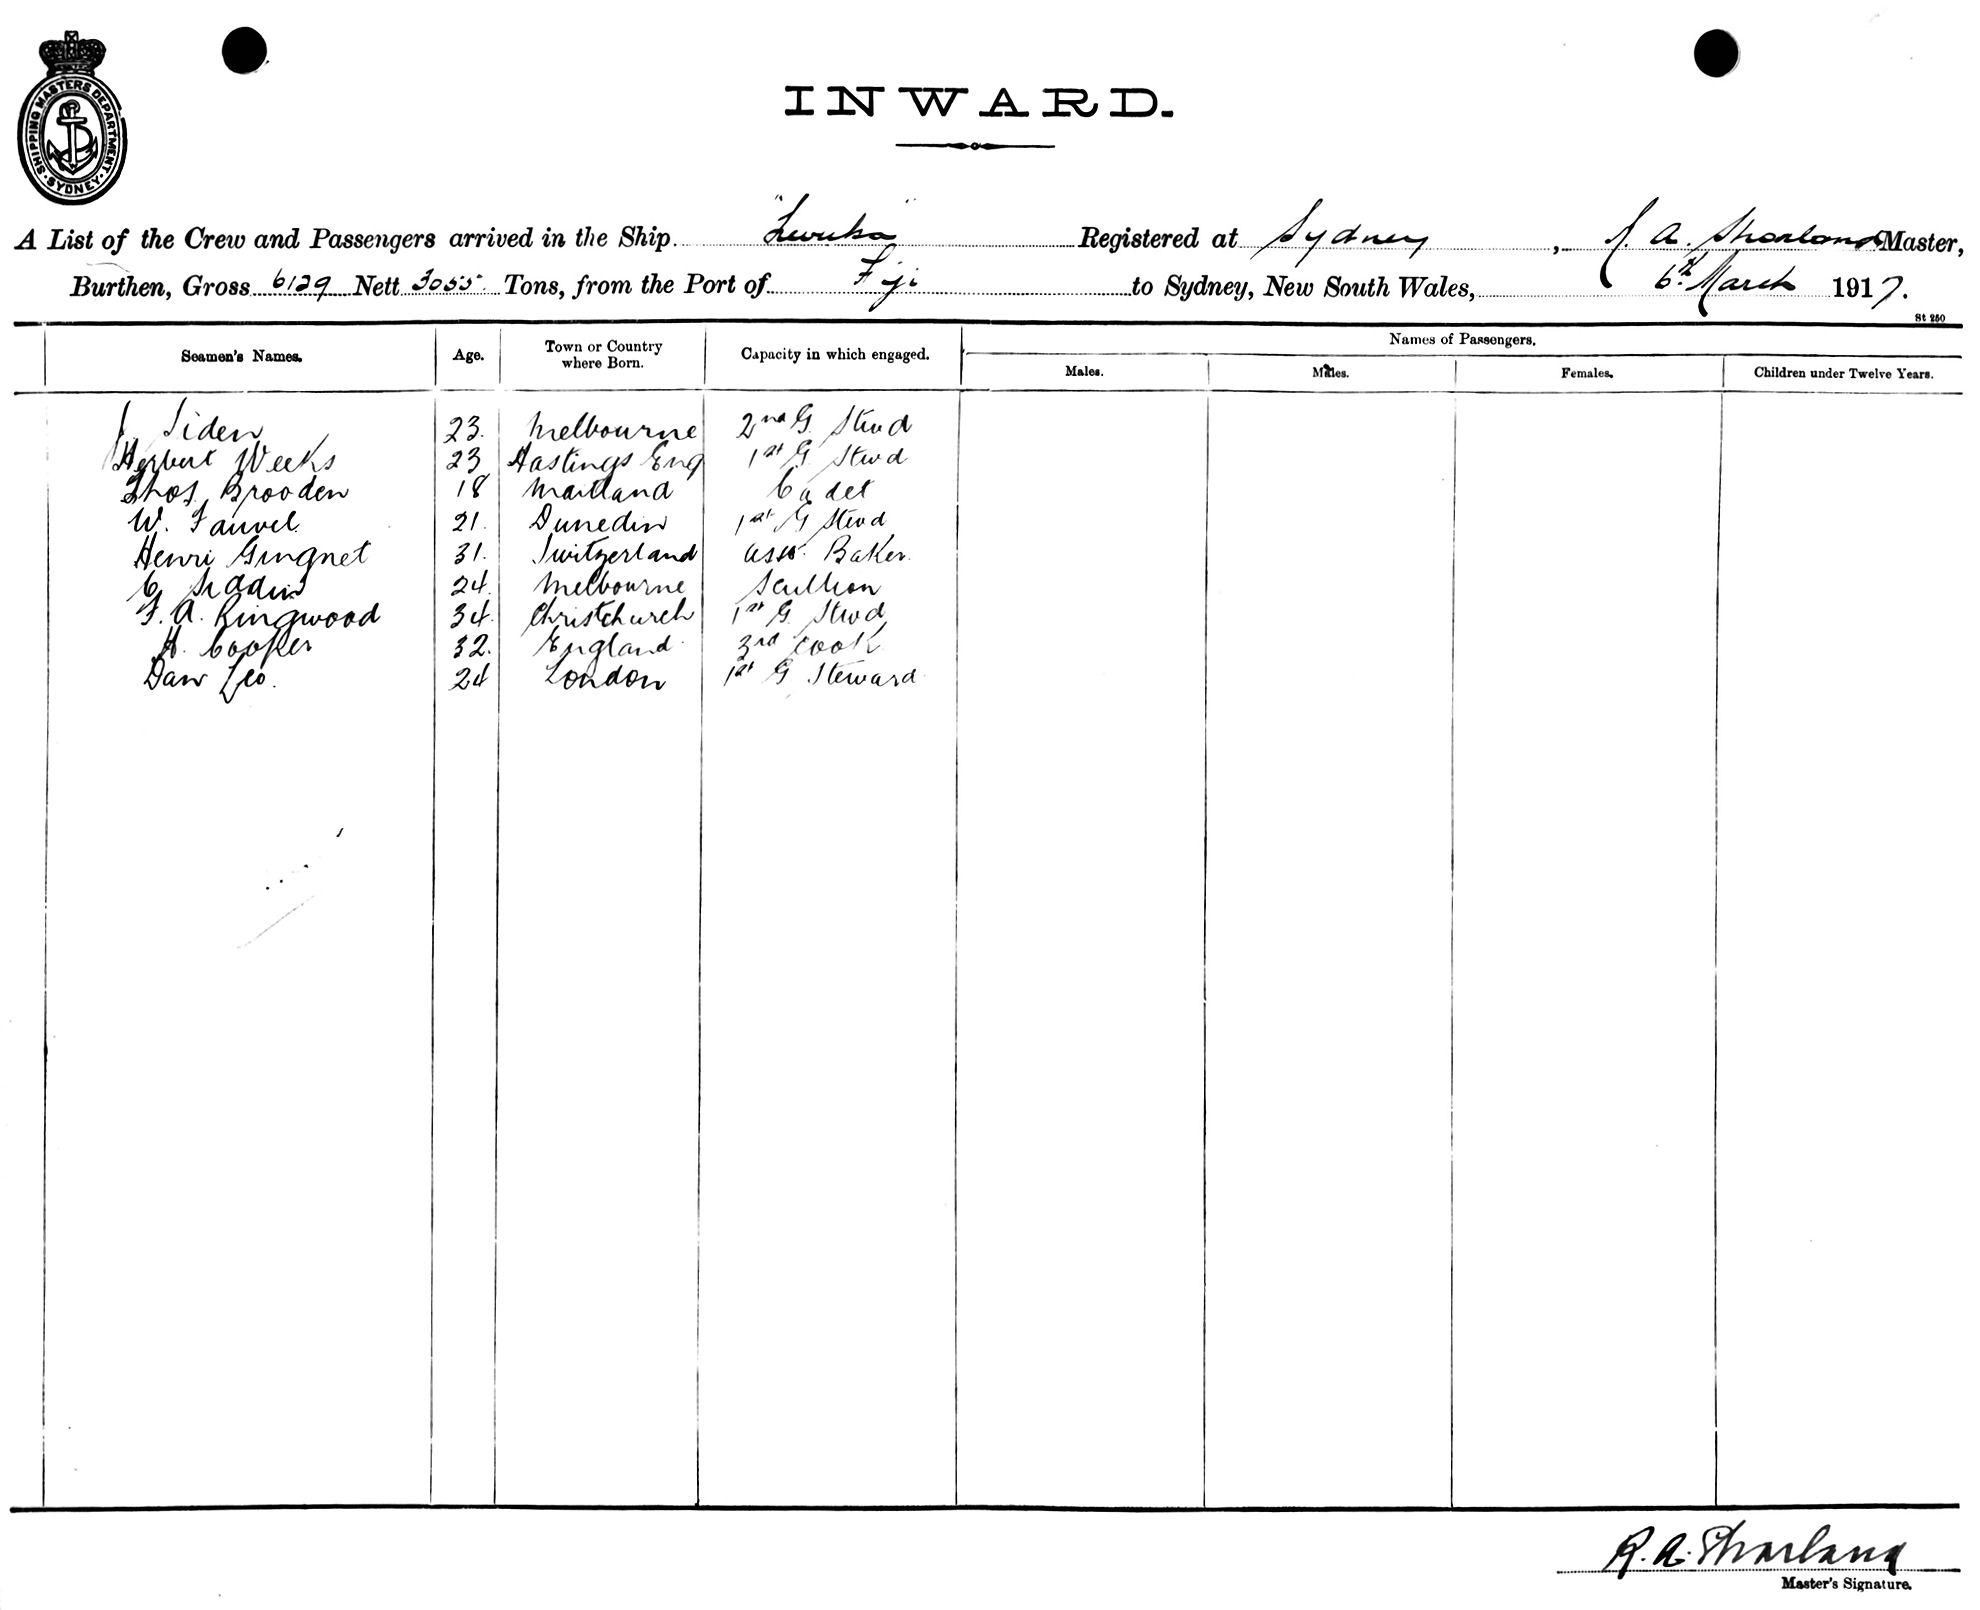 SHIPPING MASTERS DEPARTMENT
SYDNEY
INWARD.
A List of the Crew and Passengers arrived in the Ship "Levuka" Registered at Sydney, R. A. Sharland Master,
Burthen, Gross 6129 Nett 3055 Tons, from the Port of Fiji to Sydney, New South Wales, 6th March 1917.
St 250
Seamen's Names. Age. Town or Country where Born. Capacity in which engaged. Names of Passengers.
Males. Males. Females. Children under Twelve Years.
J Siden 23. Melbourne 2nd G. Stwd
Herbert Weeks 23 Hastings Eng 1st G Stwd
Thos. Brooden 18 Maitland Cadet
W. Fauvel 21. Dunedin 1st G Stwd
Henri Gingnet 31. Switzerland Asst. Baker.
C 24. Melbourne Scullion
F. A. Ringwood 34. Christchurch 1st G. Stwd
H. Cooper 32. England 3rd Cook
Daw Leo. 24 London 1st G Steward
R. A. Sharland
Master's Signature.